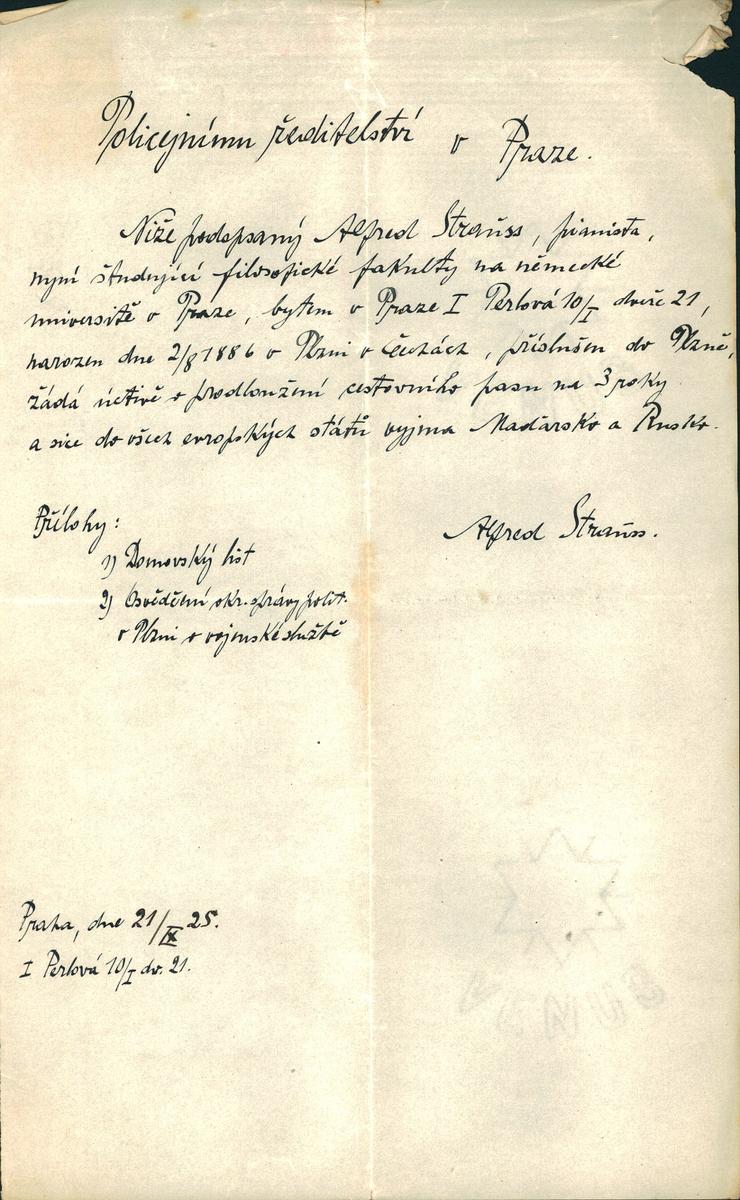 Policejnímu ředitelství v Praze.
Níže podepsaný Alfred Strauss, pianista,
nyní študující filosofické fakulty na německé
universitě v Praze, bytem v Praze I Perlová 10/I dveře 21,
narozen dne 2/8 1886 v Plzni v Čechách, příslušen do Plzně,
žádá uctivě o prodloužení cestovního pasu na 3 roky
a sice do všech evropských států vyjma Maďarsko a Rusko.
Přílohy:
Alfred Strauss.
1) Domovský list
2) Osvědčení okr. správy polit.
v Plzni o vojenské službě
Praha, dne 21/IX 25.
I Perlová 10/I dv. 21.